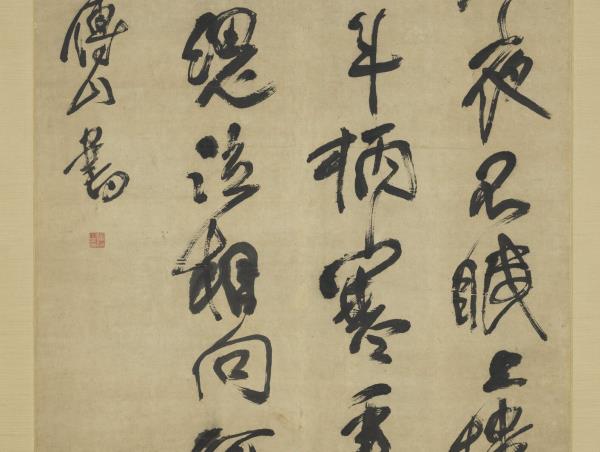 夜不眠上樓
斗柄寒垂
泣相向
傅山書